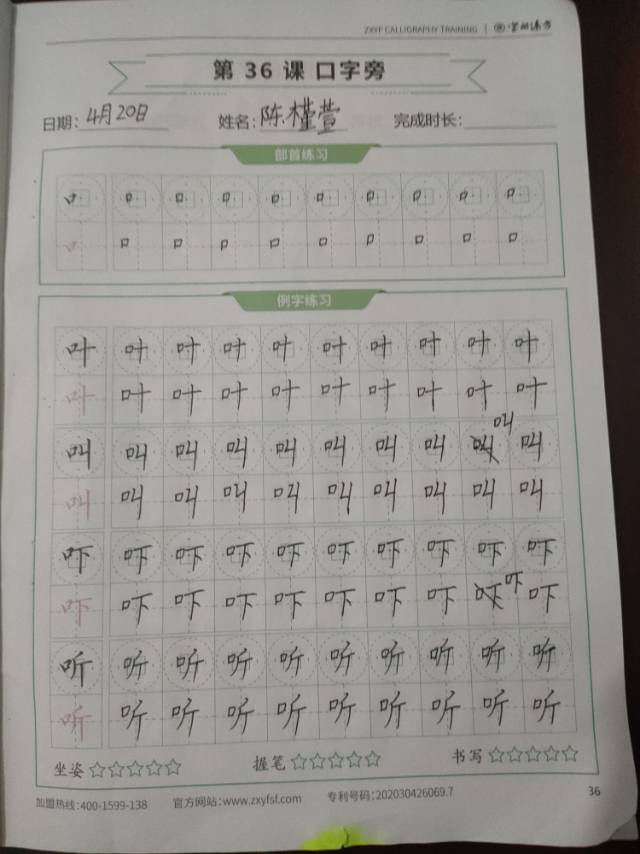 ZXYF CALLIGRAPHY TRAINING
第 36 课 口字旁
日期: 4月20日 姓名: 陈槿萱 完成时长:
部首练习
口 口 口 口 口 口 口 口 口 口
口 口 口 口 口 口 口 口 口 口
例字练习
叶 叶 叶 叶 叶 叶 叶 叶 叶 叶
叶 叶 叶 叶 叶 叶 叶 叶 叶 叶
叫
叫 叫 叫 叫 叫 叫 叫 叫 叫 叫
叫 叫 叫 叫 叫 叫 叫 叫 叫 叫
吓 吓 吓 吓 吓 吓 吓 吓 吓 吓
吓
吓 吓 吓 吓 吓 吓 吓 吓 吓 吓
听 听 听 听 听 听 听 听 听 听
听 听 听 听 听 听 听 听 听 听
坐姿 握笔 书写
加盟热线:400-1599-138 官方网站:www.zxyfsf.com 专利号码:202030426069.7 36